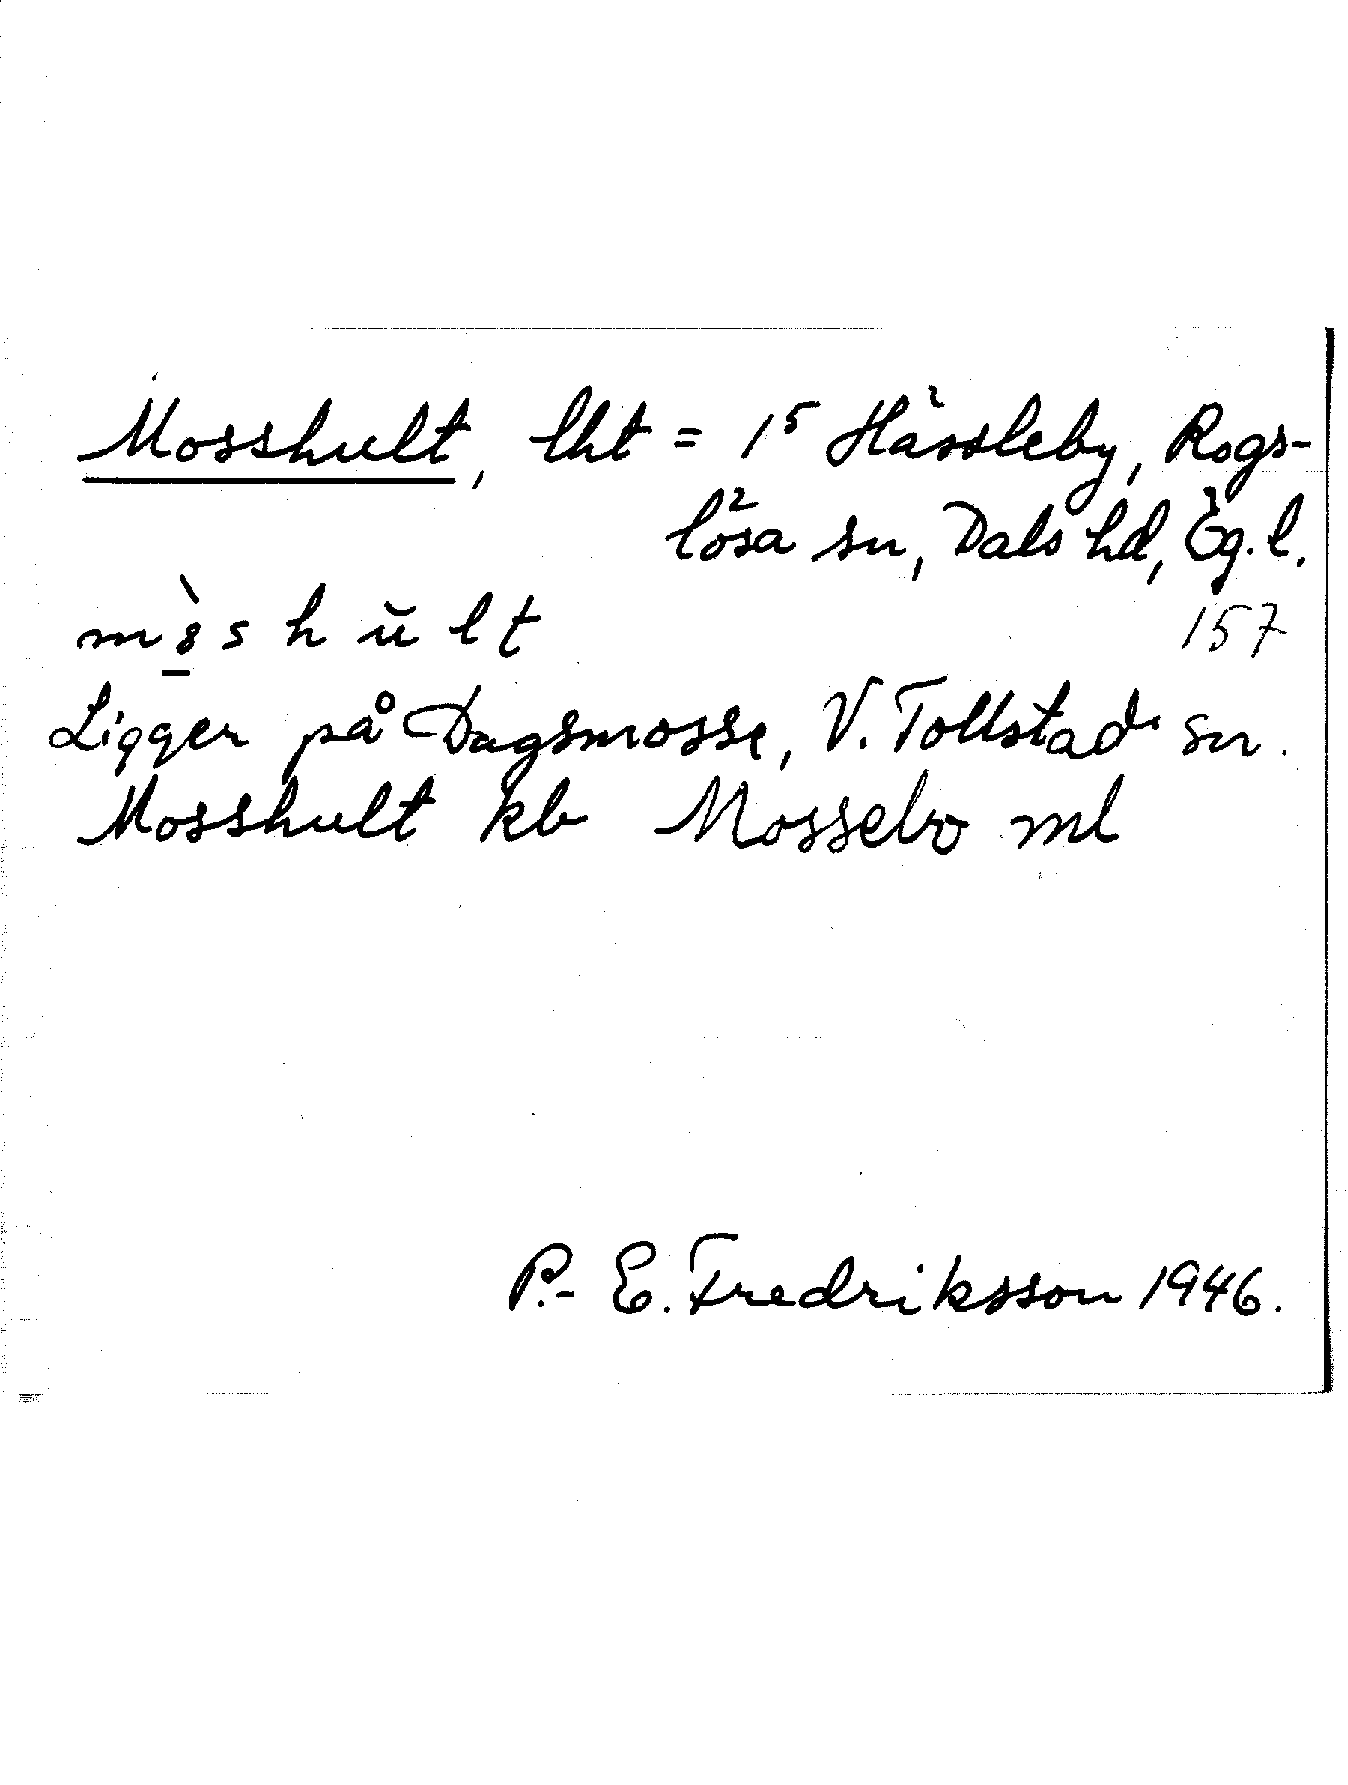 Mosshult, lht = 1⁵ Hässleby, Rogs-
lösa sn, Dals hd, Ög. l.
157
Ligger på Dagsmosse, V. Tollstad sn.
Mosshult kb Mossebo ml
P.-E. Fredriksson 1946.